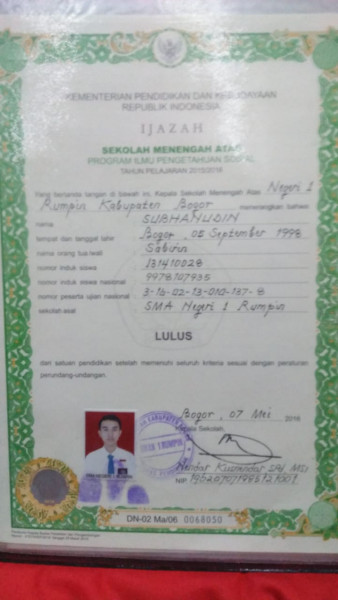 KEMENTERIAN PENDIDIKAN DAN KEBUDAYAAN
REPUBLIK INDONESIA
IJAZAH
SEKOLAH MENENGAH ATAS
PROGRAM ILMU PENGETAHUAN SOSIAL
TAHUN PELAJARAN 2015/2016
Yang bertanda tangan di bawah ini, Kepala Sekolah Menengah Atas Negeri 1
Rumpin Kabupaten Bogor menerangkan bahwa:
nama SUBHANUDIN
tempat dan tanggal lahir Bogor, 05 September 1998
nama orang tua/wali Sabirin
nomor induk siswa 131410028
nomor induk siswa nasional 9978707935
nomor peserta ujian nasional 3-16-02-13-010-137-8
sekolah asal SMA Negeri 1 Rumpin
LULUS
dari satuan pendidikan setelah memenuhi seluruh kriteria sesuai dengan peraturan
perundang-undangan.
Bogor, 07 Mei 2016
Kepala Sekolah,
NIP
DN-02 Ma/06 0068050